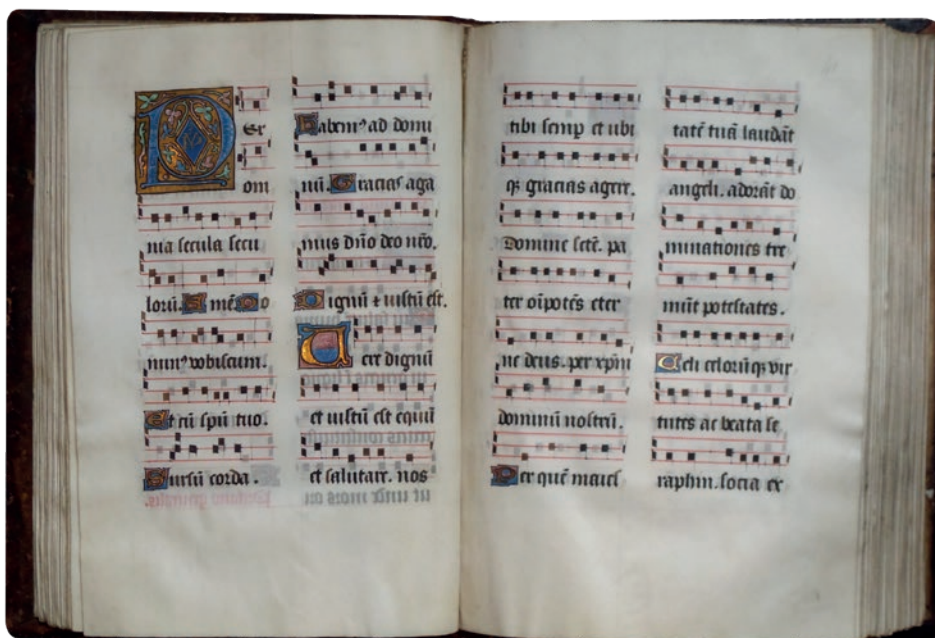 Per
om
nia secula secu
loru̅. Ame̅. Do
minꝰ vobiscum.
Et cu̅ spu̅ tuo.
Sursu̅ corda.
Habemꝰ ad domi
nu̅. Gracias aga
mus d̅no deo n̅ro.
Dignu̅ ⁊ iustu̅ est.
Uere dignu̅
et iustu̅ est equu̅
et salutare. nos
tibi semp̲ et ubi
qꝫ gracias agere.
Domine sc̅te. pa
ter oi̅pote̅s eter
ne deus. per xp̅m
dominu̅ nostru̅.
Per que̅ maies
tate̅ tua̅ lauda̅t
angeli. adora̅t do
minationes tre
mu̅t potestates.
Celi celoru̅qꝫ vir
tutes ac beata se
raphin. socia ex